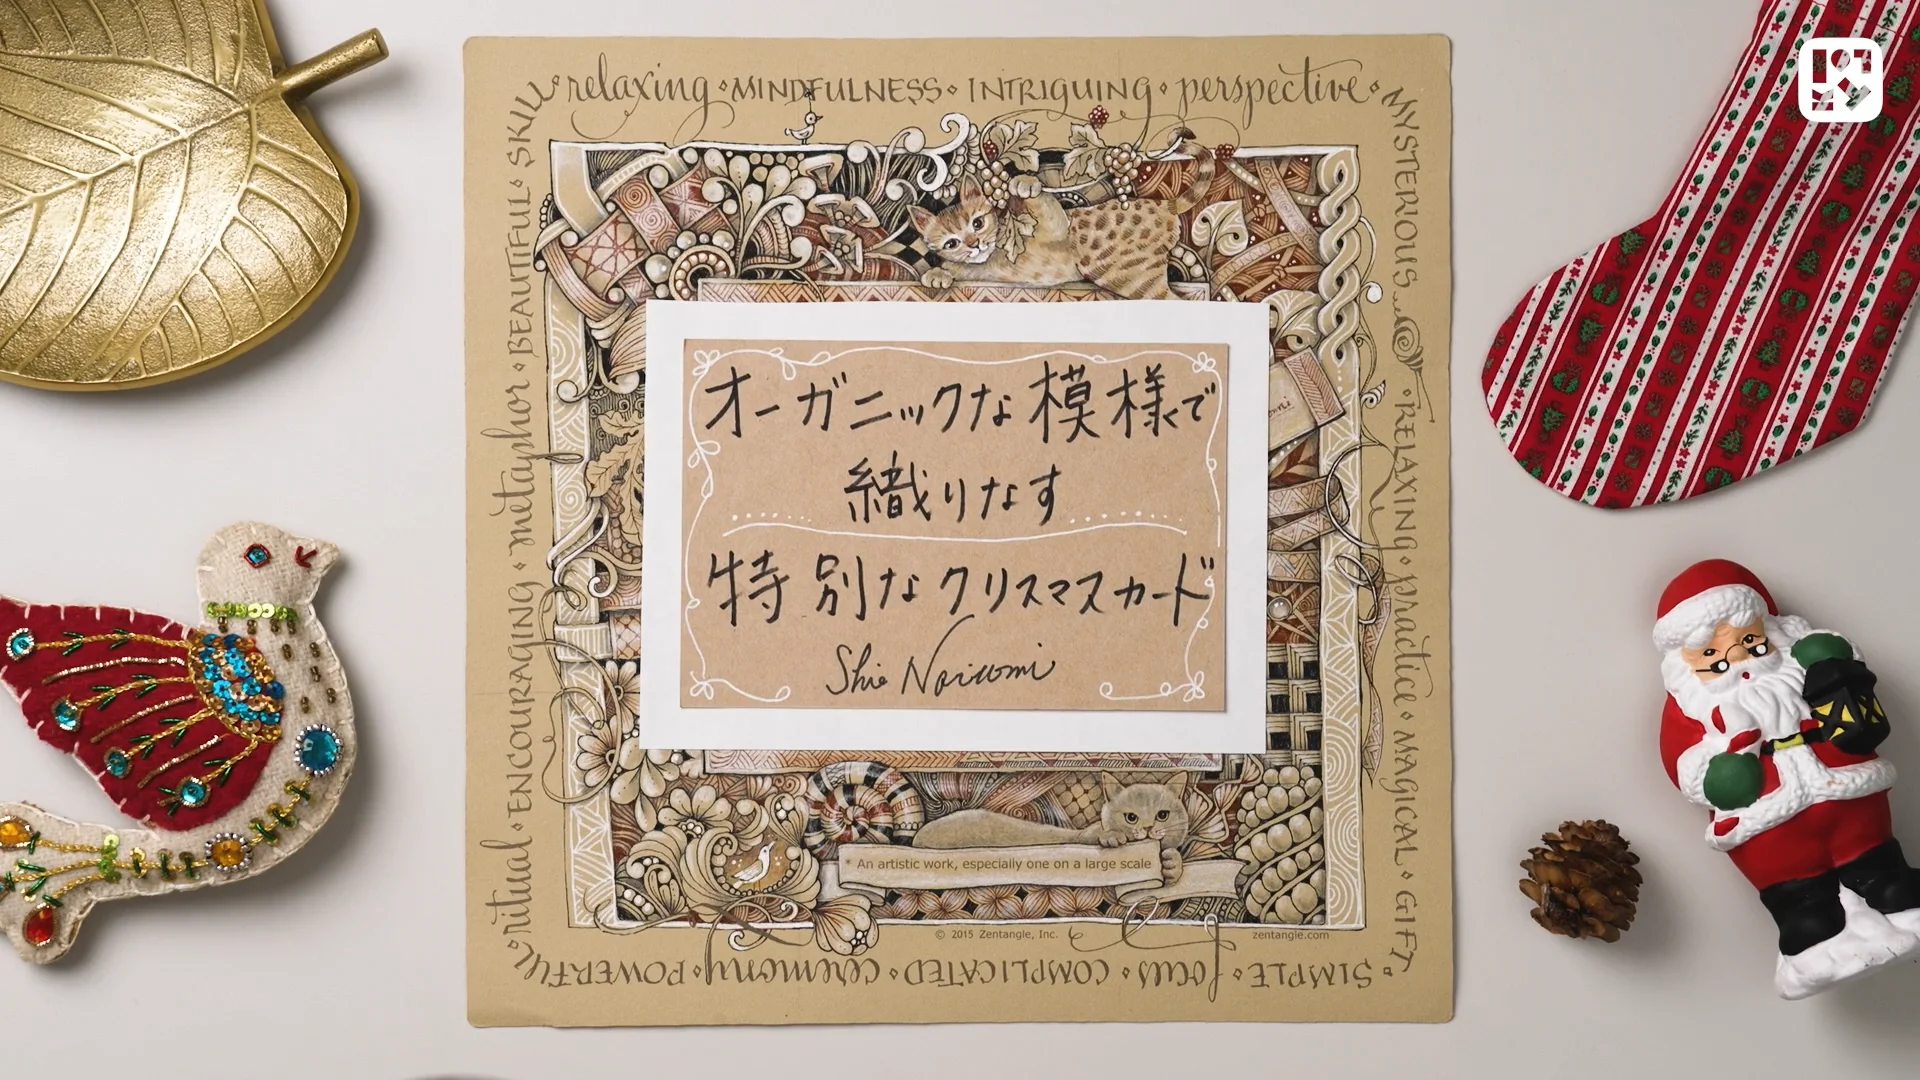 relaxing · MINDFULNESS · INTRIGUING · perspective ·
MYSTERIOUS
RELAXING · practice · MAGICAL · GIFT
SIMPLE · focus · COMPLICATED · ceremony · POWERFUL
ritual · ENCOURAGING · metaphor · BEAUTIFUL · SKILL
オーガニックな模様で
織りなす
特別なクリスマスカード
Shie Naritomi
* An artistic work, especially one on a large scale
© 2015 Zentangle, Inc.
zentangle.com